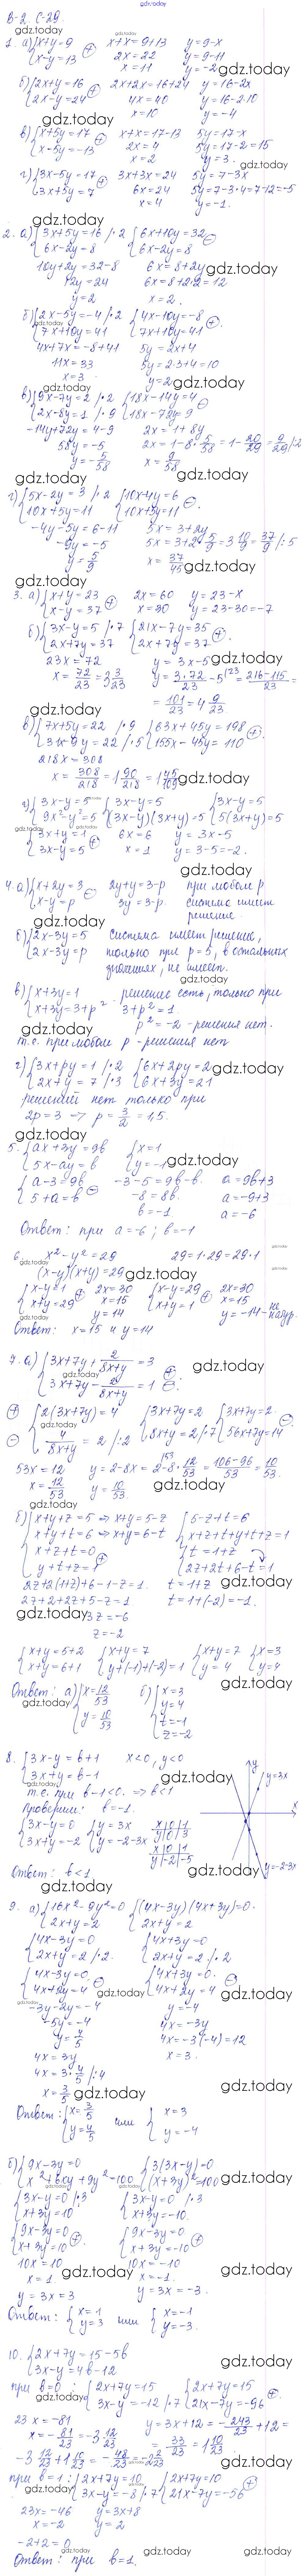 gdz.today
В-2. С-29.
1. а) {x+y=9 x-y=13 ⊕ x+x=9+13 2x=22 x=11 y=9-x y=9-11 y=-2
б) {2x+y=16 2x-y=24 ⊕ 2x+2x=16+24 4x=40 x=10 y=16-2x y=16-2·10 y=-4
в) {x+5y=17 x-5y=-13 ⊕ x+x=17-13 2x=4 x=2 5y=17-x 5y=17-2=15 y=3.
г) {3x-5y=17 3x+5y=7 ⊕ 3x+3x=24 6x=24 x=4 5y=7-3x 5y=7-3·4=7-12=-5 y=-1.
2. а) {3x+5y=16 /·2 6x-2y=8 {6x+10y=32 6x-2y=8 ⊖
10y+2y=32-8 6x=8+2y
12y=24 6x=8+2·2=12
y=2 x=2.
б) {2x-5y=-4 /·2 7x+10y=41 {4x-10y=-8 7x+10y=41 ⊕
4x+7x=-8+41 5y=2x+4
11x=33 5y=2·3+4=10
x=3 y=2
в) {9x-7y=2 /·2 2x-8y=1 /·9 {18x-14y=4 18x-72y=9 ⊖
-14y+72y=4-9 2x=1+8y
58y=-5 2x=1-8·5/58=1-20/29=9/29 /:2
y=-5/58 x=9/58
г) {5x-2y=3 /·2 10x+5y=11 {10x-4y=6 10x+5y=11 ⊖
-4y-5y=6-11 5x=3+2y
-9y=-5 5x=3+2·5/9=3 10/9=37/9 /:5
y=5/9 x=37/45
3. а) {x+y=23 x-y=37 ⊕ 2x=60 x=30 y=23-x y=23-30=-7
б) {3x-y=5 /·7 2x+7y=37 {21x-7y=35 2x+7y=37 ⊕
23x=72 y=3x-5
x=72/23=3 3/23 y=3·72/23-5=216-115/23=
=101/23=4 9/23
в) {7x+5y=22 /·9 31x-9y=22 /·5 {63x+45y=198 155x-45y=110 ⊕
218x=308
x=308/218=1 90/218=1 45/109
г) {3x-y=5 9x²-y²=5 {3x-y=5 (3x-y)(3x+y)=5 {3x-y=5 5(3x+y)=5
{3x+y=1 3x-y=5 ⊕ 6x=6 x=1 y=3x-5 y=3-5=-2.
4. а) {x+2y=3 x-y=p ⊖ 2y+y=3-p 3y=3-p при любом p система имеет решение.
б) {2x-3y=5 2x-3y=p система имеет решение, только при p=5, в остальных значениях, не имеет.
в) {x+3y=1 x+3y=3+p² - решение есть, только при
3+p²=1
p²=-2 - решения нет.
т.е. при любом p - решения нет
г) {3x+py=1 /·2 2x+y=7 /·3 {6x+2py=2 6x+3y=21
решений нет только при
2p=3 ⇒ p=3/2=1,5.
5. {ax+3y=9b 5x-ay=b {x=1 y=-1
{a-3=9b 5+a=b ⊖ -3-5=9b-b. -8=8b. b=-1 a=9b+3 a=-9+3 a=-6
Ответ: при a=-6; b=-1
6. x²-y²=29 29=1·29=29·1
(x-y)(x+y)=29
{x-y=1 x+y=29 ⊕ 2x=30 x=15 y=14 {x-y=29 x+y=1 ⊕ 2x=30 x=15 y=-14-не натур.
Ответ: x=15 и y=14
7. а) {3x+7y+2/8x+y=3 3x+7y-2/8x+y=1 ⊕ ⊖
⊕ ⊖ {2(3x+7y)=4 4/8x+y=2 /:2 {3x+7y=2 8x+y=2 /·7 {3x+7y=2. 56x+7y=14 ⊖
53x=12 y=2-8x=2-8·12/53=106-96/53=10/53.
x=12/53 y=10/53.
б) {x+y+z=5 ⇒ x+y=5-z x+y+t=6 ⇒ x+y=6-t x+z+t=0 y+t+z=1 ⊕ {5-z+t=6 x+z+t+y+t+z=1 {t=1+z 2z+2t+6-t=1
2z+2(1+z)+6-1-z=1. t=1+z
2z+2+2z+5-z=1 t=1+(-2)=-1.
3z=-6
z=-2
{x+y=5+2 x+y=6+1 {x+y=7 y+(-1)+(-2)=1 {x+y=7 y=4 {x=3 y=4
Ответ: а) {x=12/53 y=10/53 б) {x=3 y=4 t=-1 z=-2
8. {3x-y=b+1 3x+y=b-1 x<0, y<0
т.е. при b-1<0. ⇒ b<1
Проверим: b=-1.
{3x-y=0 3x+y=-2 {y=3x y=-2-3x x|0|1 y|0|3 x|0|1 y|-2|-5
y y=3x x y=-2-3x
Ответ: b<1
9. а) {16x²-9y²=0 2x+y=2 {(4x-3y)(4x+3y)=0. 2x+y=2
{4x-3y=0 2x+y=2 /·2. {4x+3y=0 2x+y=2 /·2
{4x-3y=0 4x+2y=4 ⊖ {4x+3y=0. 4x+2y=4 ⊖
-3y-2y=-4 y=-4
-5y=-4 4x=-3y
y=4/5 4x=-3·(-4)=12
4x=3y x=3.
4x=3·4/5 /:4
x=3/5
Ответ: {x=3/5 y=4/5 или {x=3 y=-4
б) {9x-3y=0 x²+6xy+9y²=100 {3(3x-y)=0 (x+3y)²=100
{3x-y=0 /·3 x+3y=10 {3x-y=0 /·3 x+3y=-10.
{9x-3y=0 x+3y=10 ⊕ {9x-3y=0. x+3y=-10 ⊕
10x=10 10x=-10
x=1. x=-1.
y=3x=3 y=3x=-3.
Ответ: {x=1 y=3 или {x=-1 y=-3.
10. {2x+7y=15-5b 3x-y=4b-12
при b=0: {2x+7y=15 3x-y=-12 /·7 {2x+7y=15 21x-7y=-96 ⊕
23x=-81 y=3x+12=-243/23+12=
x=-81/23=-3 12/23 =33/23=1 10/23
-3 12/23+1 10/23=-48/23=-2 2/23
при b=1: {2x+7y=10 3x-y=-8 /·7 {2x+7y=10 21x-7y=-56 ⊕
23x=-46 y=3x+8
x=-2 y=2
-2+2=0
Ответ: при b=1.